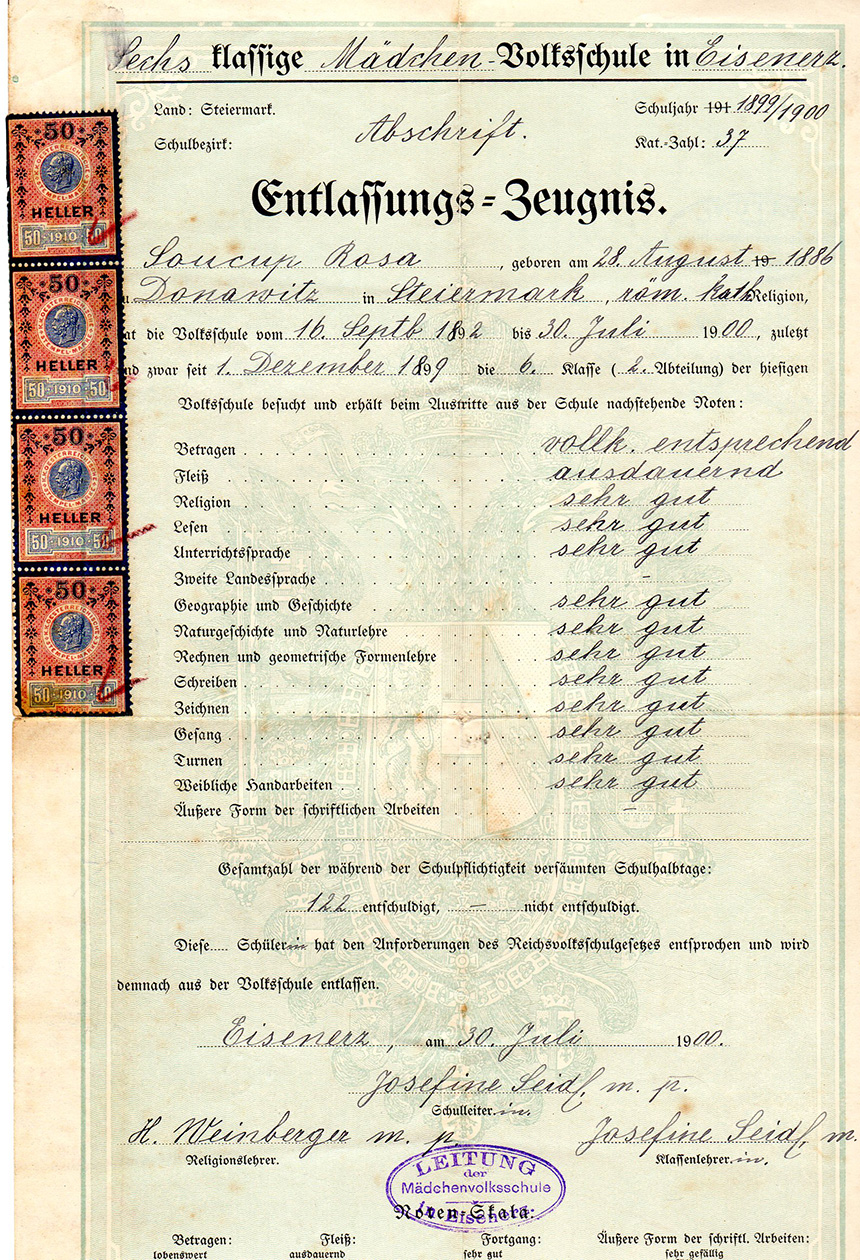 Sechs klassige Mädchen-Volksschule in Eisenerz.
Land: Steiermark.
Schuljahr 191 1899/1900
Schulbezirk:
Abschrift.
Kat.-Zahl: 37
Entlassungs-Zeugnis.
Soucup Rosa, geboren am 28. August 19 1886
u Donawitz in Steiermark, röm. kath Religion,
at die Volksschule vom 16. Septb 1892 bis 30. Juli 1900, zuletzt
nd zwar seit 1. Dezember 1899 die 6. Klasse (2. Abteilung) der hiesigen
Volksschule besucht und erhält beim Austritte aus der Schule nachstehende Noten:
Betragen vollk. entsprechend
Fleiß ausdauernd
Religion sehr gut
Lesen sehr gut
Unterrichtssprache sehr gut
Zweite Landessprache -
Geographie und Geschichte sehr gut
Naturgeschichte und Naturlehre sehr gut
Rechnen und geometrische Formenlehre sehr gut
Schreiben sehr gut
Zeichnen sehr gut
Gesang sehr gut
Turnen sehr gut
Weibliche Handarbeiten sehr gut
Äußere Form der schriftlichen Arbeiten –
Gesamtzahl der während der Schulpflichtigkeit versäumten Schulhalbtage:
122 entschuldigt, – nicht entschuldigt.
Diese Schülerin hat den Anforderungen des Reichsvolksschulgesetzes entsprochen und wird
demnach aus der Volksschule entlassen.
Eisenerz, am 30. Juli 1900.
Josefine Seidl, m. p.
Schulleiter in.
H. Weinberger m. p.
Josefine Seidl, m.
Religionslehrer.
Klassenlehrer in.
LEITUNG
der
Mädchenvolksschule
in Eisenerz
Noten-Skala:
Betragen: Fleiß: Fortgang: Äußere Form der schriftl. Arbeiten:
lobenswert ausdauernd sehr gut sehr gefällig
50
HELLER
50 1910 50
50
HELLER
50 1910 50
50
HELLER
50 1910 50
50
HELLER
50 1910 50